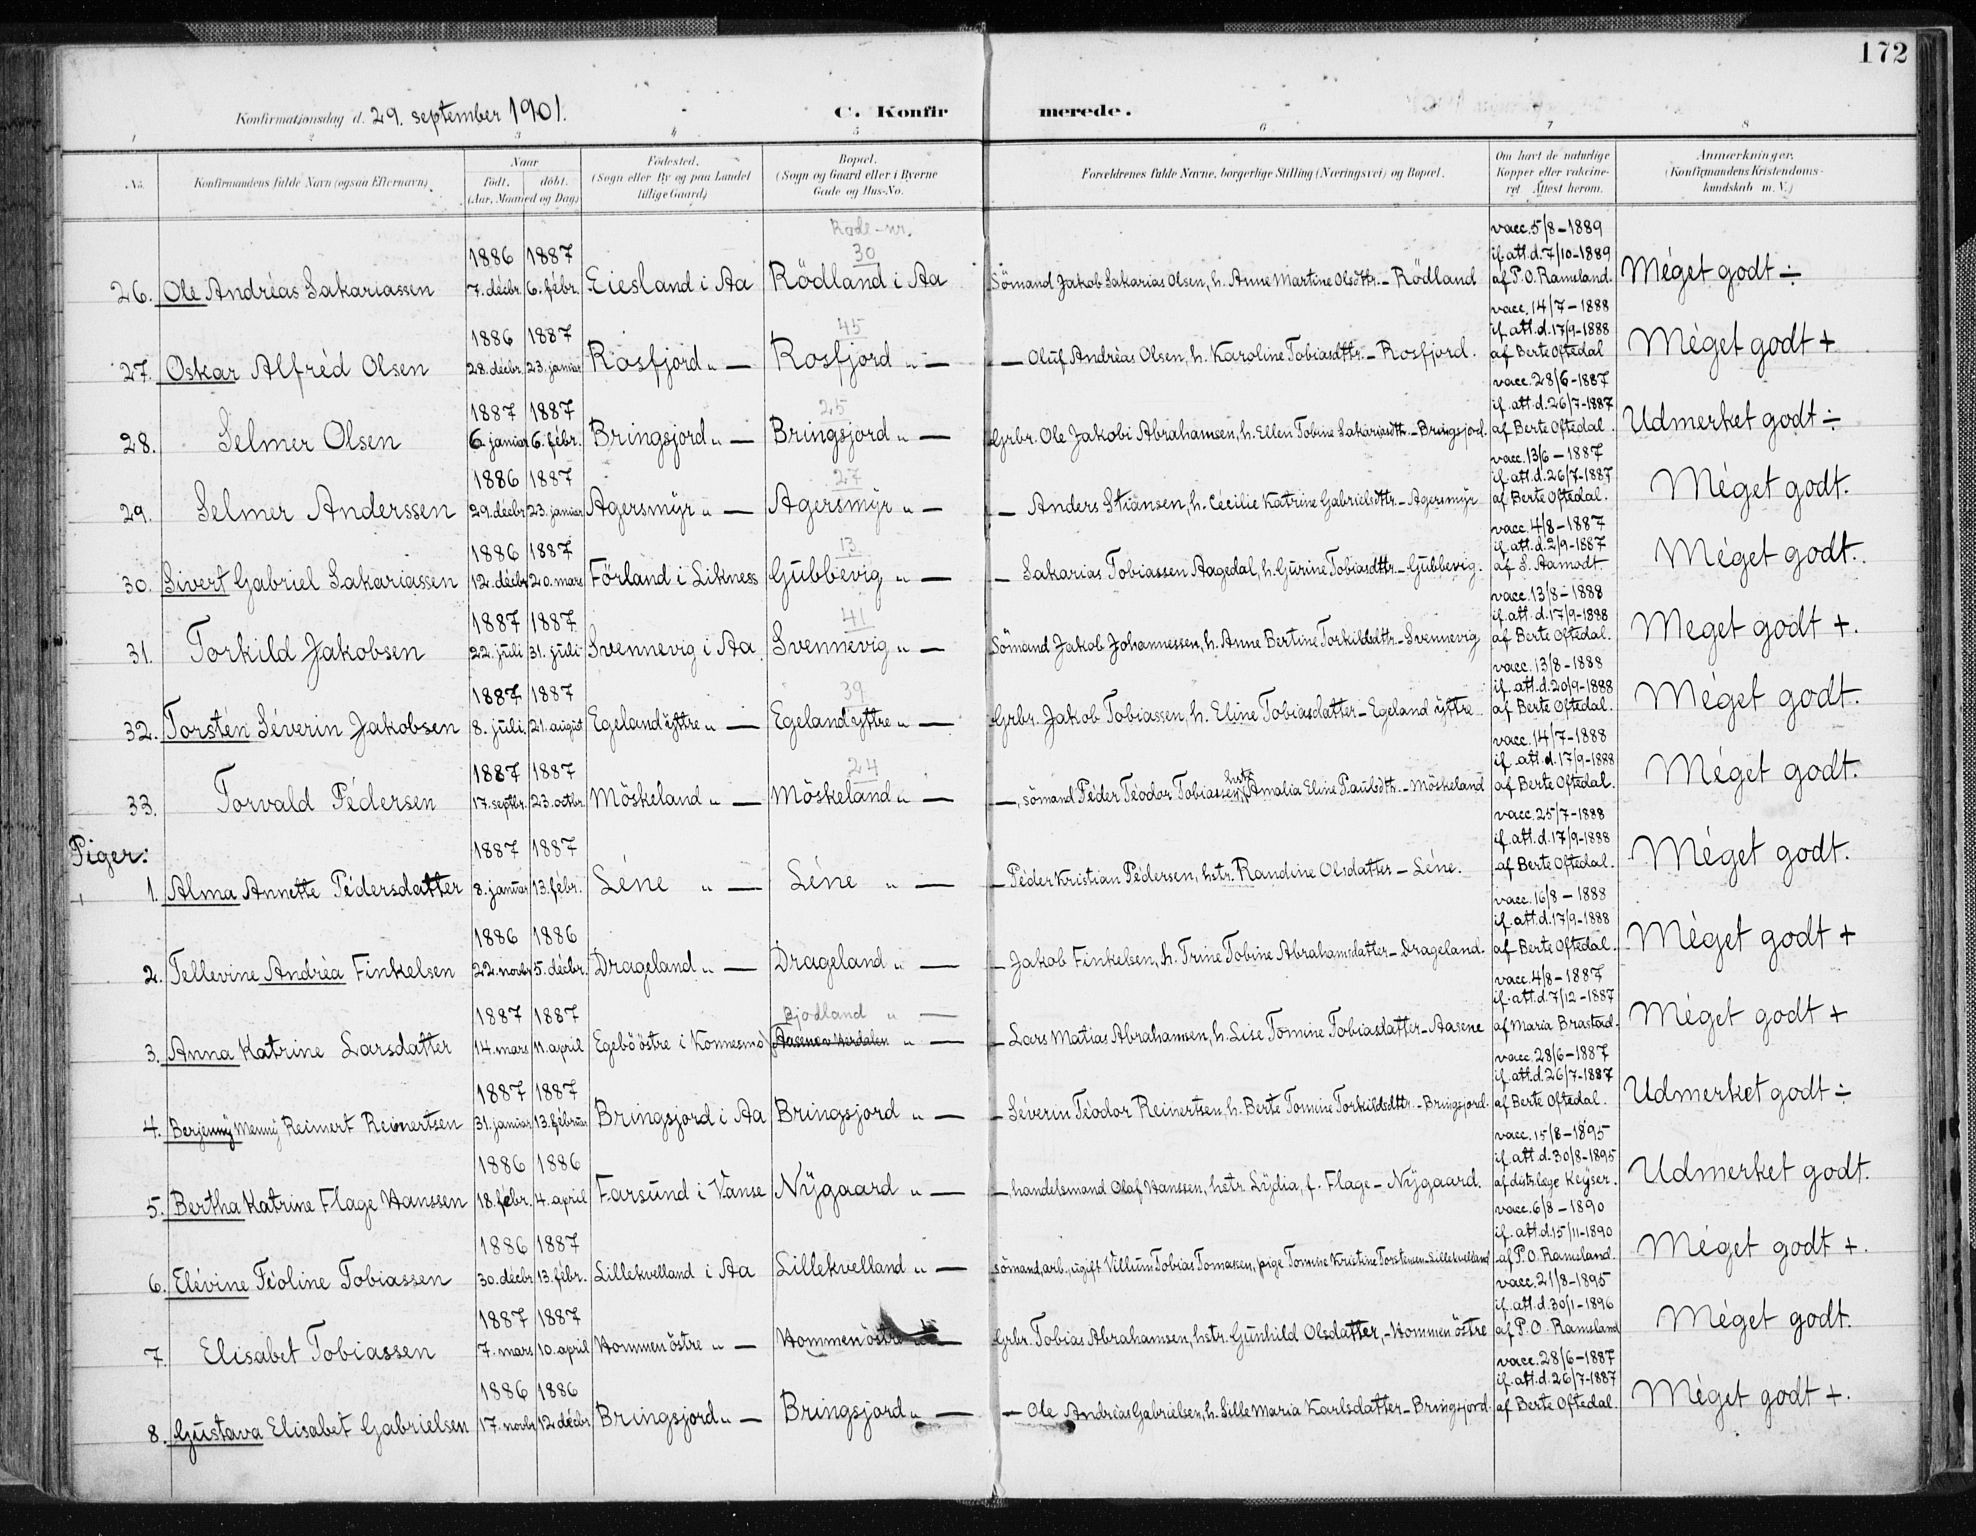 172
Konfirmationsdag d. 29. september 1901.
C. Konfirmerede.
1 2 3 4 5 6 7 8
No. Konfirmandens fulde Navn (ogsaa Efternavn). Naar født. døbt. (Aar, Maaned og Dag) Fødested. (Sogn eller By og paa Landet tillige Gaard) Bopæl. (Sogn og Gaard eller i Byerne Gade og Hus-No. Forældrenes fulde Navne, borgerlige Stilling (Næringsvei) og Bopæl. Om havt de naturlige Kopper eller vakcineret. Attest herom. Anmærkninger. (Konfirmandens Kristendomskundskab m. V.)
Rode-nr.
26. Ole Andréas Sakariassen 1886 7. décbr. 1887 6. fébr. Eiesland i Aa 30 Rödland i Aa Sömand Jakob Sakarias Olsen, h. Anne Martine Olsdttr. – Rödland vacc. 5/8 – 1889 if. att. d. 7/10 – 1889 af P. O. Ramsland. Méget godt ÷
27. Oskar Alfréd Olsen 1886 28. décbr. 1887 23. januar Rosfjord " — 45 Rosfjord " — — Oluf Andréas Olsen, h. Karoline Tobiasdttr. – Rosfjord. vacc. 14/7 – 1888 if. att. d. 17/9 – 1888 af Berte Oftedal Méget godt +
28. Selmer Olsen 1887 6. januar 1887 6. fébr. Bringsjord " — 25 Bringsjord " — Grbr. Ole Jakobi Abrahamsen, h. Ellen Tobine Sakariasdtr. – Bringsjord. vacc. 28/6 – 1887 if. att. d. 26/7 – 1887 af Berte Oftedal. Udmerket godt ÷
29. Selmer Anderssen 1886 29. décbr. 1887 23. januar Agersmÿr " — 27 Agersmÿr " — — Anders Stiansen, h. Cécilie Katrine Gabrielsdttr. – Agersmÿr vacc. 13/6 – 1887 if. att. d. 26/7 – 1887 af Berte Oftedal. Méget godt.
30. Sivert Gabriel Sakariassen 1886 12. décbr. 1887 20. mars Förland i Likness 13 Gubbevig " — — Sakarias Tobiassen Aagedal, h. Gurine Tobiasdttr. – Gubbevig. vacc. 4/8 – 1887 if. att. d. 2/9 – 1887 af S. Aamodt Méget godt.
31. Torkild Jakobsen 1887 22. juli 1887 31. juli Svennevig i Aa 41 Svennevig " — Sömand Jakob Johannessen, h. Anne Bertine Torkildsdttr. – Svennevig vacc. 13/8 – 1888 if. att. d. 17/9 – 1888 af Berte Oftedal. Meget godt +.
32. Torstén Séverin Jakobsen 1887 8. juli 1887 21. august Egeland ÿttre " — 39 Egeland ÿttre " — Grbr. Jakob Tobiassen, h. Eline Tobiasdatter – Egeland ÿttre vacc. 13/8 – 1888 if. att. d. 20/9 – 1888 af Berte Oftedal. Méget godt.
33. Torvald Pédersen 1887 17. septbr. 1887 23. octbr. Möskeland " — 24 Möskeland " — —, sömand Péder Téodor Tobiassen, hstr. Amalia Eline Paulsdtr. – Möskeland vacc. 14/7 – 1888 if. att. d. 17/9 – 1888 af Berte Oftedal. Méget godt.
Piger:
1. Alma Annette Pédersdatter 1887 8. januar 1887 13. fébr. Léne " — Léne " — — Péder Kristian Pédersen, hstr. Randine Olsdatter – Léne. vacc. 25/7 – 1888 if. att. d. 17/9 – 1888 af Berte Oftedal. Méget godt.
2. Tellevine Andréa Finkelsen 1886 22. novbr. 1886 5. décbr. Drageland " — Drageland " — — Jakob Finkelsen, h. Trine Tobine Abrahamsdatter – Drageland. vacc. 16/8 – 1888 if. att. d. 17/9 – 1888 af Berte Oftedal. Méget godt +
3. Anna Katrine Larsdatter 1887 14. mars 1887 11. april Egebö östre i Konnesmo Bjodland " — Aasene v Herdalen " — — Lars Matias Abrahamsen, h. Lise Tomine Tobiasdatter – Aasene vacc. 4/8 – 1887 if. att. d. 7/12 – 1887 af Maria Brastad. Méget godt +
4. Berjenný Menný Reinert Reinertsen 1887 31. januar 1887 13. februar Bringsjord i Aa Bringsjord " — — Séverin Téodor Reinertsen, h. Berte Tomine Torkildsdttr. – Bringsjord. vacc. 28/6 – 1887 if. att. d. 26/7 – 1887 af Berte Oftedal. Udmerket godt ÷
5. Bertha Katrine Flage Hanssen 1886 18. fébr. 1886 4. april Farsund i Vanse Nÿgaard " — —, handelsmand Olaf Hanssen, hstr. Lÿdia, f. Flage – Nÿgaard. vacc. 15/8 – 1895 if. att. d. 30/8 – 1895 af distr.læge Keÿser. Udmerket godt.
6. Elévine Téoline Tobiassen 1886 30. décbr. 1887 13. fébr. Lillekvelland i Aa Lillekvelland " — sömand, arb., ugift Villum Tobias Tomassen, pige Tomine Kristine Torstensen – Lillekvelland vacc. 6/8 – 1890 if. att. d. 15/11 – 1890 af P. O. Ramsland. Méget godt +.
7. Elisabet Tobiassen 1887 7. mars 1887 10. april Hommen östre " — Hommen östre " — Grbr. Tobias Abrahamsen, hstr. Gunhild Olsdatter, – Hommen östre vacc. 21/8 – 1895 if. att. d. 30/1 – 1896 af P. O. Ramsland Méget godt.
8. Gustava Elisabet Gabrielsen 1886 17. novbr. 1886 12 décbr. Bringsjord " — Bringsjord " — — Ole Andréas Gabrielsen, h. Sille Maria Karlsdatter – Bringsjord. vacc. 28/6 – 1887 if. att. d. 26/7 – 1887 af Berte Oftedal. Méget godt +.